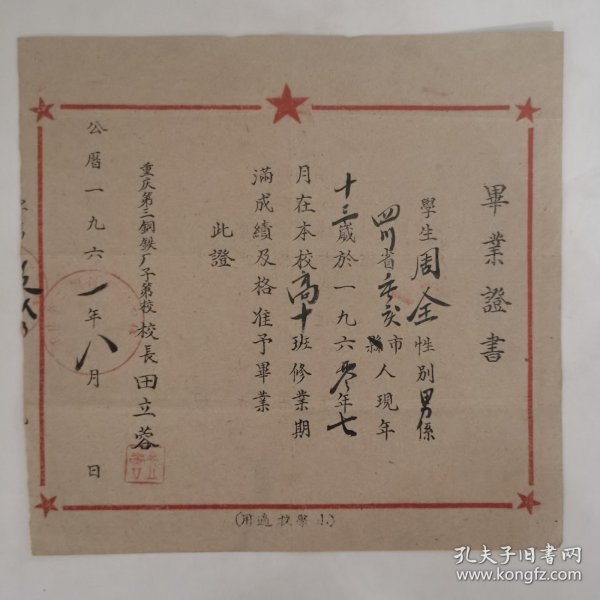 畢業證書
學生周全性別男係
四川省重庆市縣人現年
十三歲於一九六零年七
月在本校高十班修業期
滿成績及格准予畢業
此證
重庆第三鋼鉄厂子第校校長田立蓉
公曆一九六一年八月 日
(小學校適用)
孔夫子旧书网
www.kongfz.com